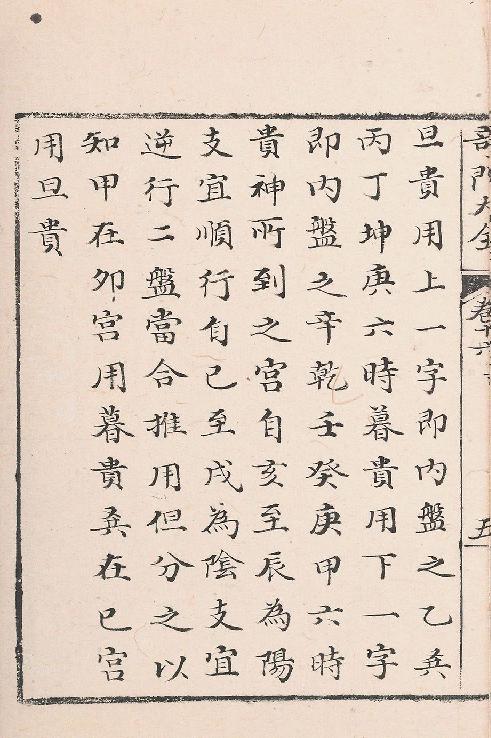 大全
五
旦貴用上一字即内盤之乙巽
丙丁坤庚六時暮貴用下一字
即内盤之辛乾壬癸庚甲六時
貴神所到之宮自亥至辰為陽
支宜順行自巳至戌為陰支宜
逆行二盤當合推用但分之以
知甲在夘宮用暮貴巽在巳宮
用旦貴